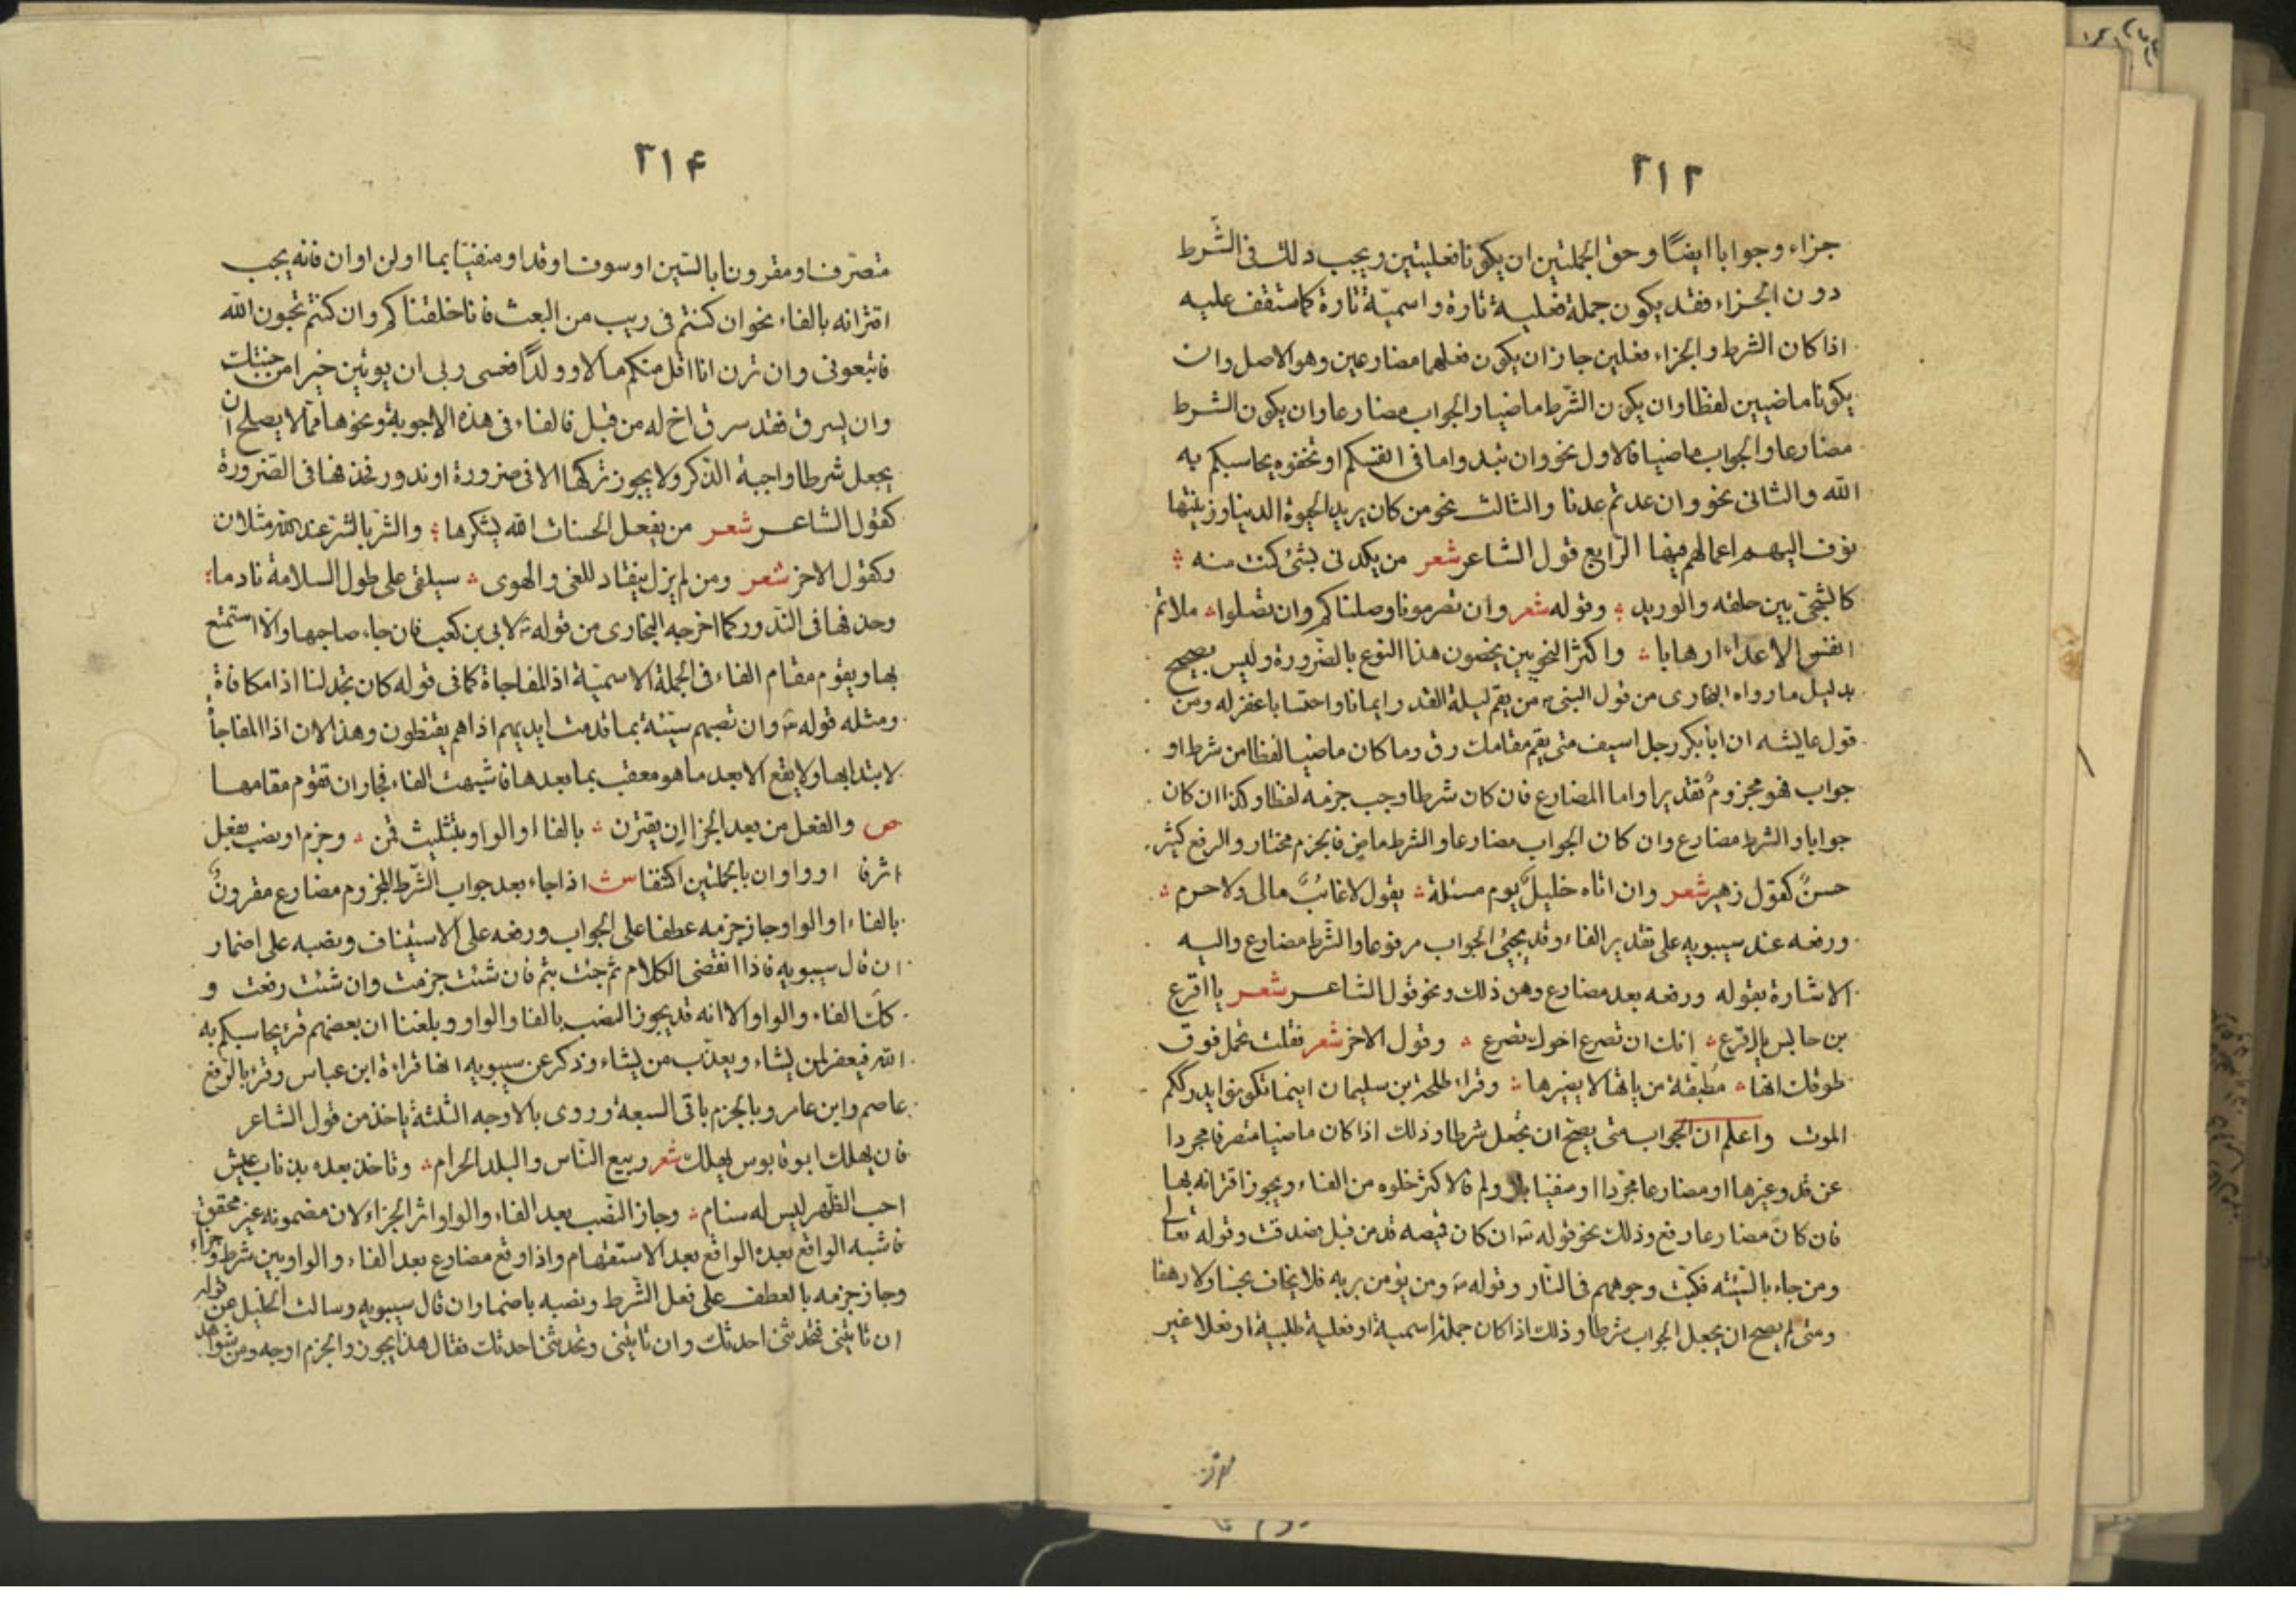 ٣١٣
جزاء وجوابا ايضًا وحق الجملتين ان يكونا فعليتين ويجب ذلك فى الشّرط
دون الجزاء فقد يكون جملة فعلية تارة واسميّة تارة كما ستقف عليه
اذا كان الشرط والجزاء فعلين جاز ان يكون فعلهما مضارعين وهو الاصل وان
يكونا ماضيين لفظا وان يكون الشّرط ماضيا والجواب مضارعا وان يكون الشرط
مضارعا والجواب ماضيا فالاول نحو وان تبدوا ما فى انفسكم او تخفوه يحاسبكم به
اللّه والثانى نحو وان عدتم عدنا والثالث نحو من كان يريد الحيوة الدينا وزينتها
نوف اليهم اعمالهم فيها الرّابع قول الشاعر شعر من يكدنى بشئ كنت منه
كالشجىّ بين حلقه والوريد وقوله شعر وان تصرمونا وصلناكم وان تصلوا ملاتم
انفس الاعداء ارهابا واكثر النحويين يخصون هذا النوع بالضّرورة وليس بصحيح
بدليل ما رواه البخارى من قول النبى من يقم ليلة القدر ايمانا واحتسابا غفر له ومن
قول عايشه ان ابا بكر رجل اسيف متى يقم مقامك رق وما كان ماضيا لفظا من شرط او
جواب فهو مجزوم تقديرا واما المضارع فان كان شرطا وجب جزمه لفظا وكذا ان كان
جوابا والشرط مضارع وان كان الجواب مضارعا والشرط ماض فالجزم مختار والرفع كثير
حسنٌ كقول زهير شعر وان اتاه خليل يوم مسئلة يقول لا غائبٌ مالى ولا حرم
ورفعه عند سيبويه على تقدير الفاء وقد يجئ الجواب مرفوعا والشّرط مضارع واليه
الاشارة بقوله ورفعه بعد مضارع وهن ذلك ونحو قول الشاعر شعر يا اقرع
بن حابس يا اقرع انك ان تصرع اخوك تصرع وقول الاخر شعر فقلت تحمل فوق
طوقك انها مطبقة من ياتها لا يضيرها وقراء طلحة بن سليمان اينما تكونوا يدرككم
الموت واعلم ان الجواب متى يصح ان يجعل شرطا وذلك اذا كان ماضيا متصرفا مجردا
عن قد وغيرها او مضارعا مجردا او منفيا بلا ولم فالاكثر خلوه من الفاء ويجوز اقترانه بها
فان كان مضارعا رفع وذلك نحو قوله ان كان قميصه قد من قبل فصدقت وقوله تعالى
ومن جاء بالسّيئة فكبّت وجوههم فى النّار وقوله ومن يؤمن بربه فلا يخاف بخسا ولا رهقا
ومتى لم يصح ان يجعل الجواب شرطا وذلك اذا كان جملة اسمية او فعلية طلبية او فعلا غير
٣١۴
متصرّفا او مقرونا بالسّين او سوف او قد او منفيّا بما او لن او ان فانه يجب
اقترانه بالفاء نحو ان كنتم فى ريب من البعث فانا خلقناكم وان كنتم تحبون اللّه
فاتبعونى وان ترن انا اقل منكم مالا وولدًا فعسى ربى ان يوتين خيرا من جنتك
وان يسرق فقد سرق اخ له من قبل فالفاء فى هذه الاجوبة ونحوها ممّا لا يصلح ان
يجعل شرطا واجبة الذكر ولا يجوز تركها الا فى ضرورة او ندور فحذفها فى الضّرورة
كقول الشاعر شعر من يفعل الحسنات اللّه يشكرها والشّر بالشّر عند اللّه مثلان
وكقول الاخر شعر ومن لم يزل ينقاد للغى والهوى سيلقى على طول السلامة نادما
وحذفها فى النّدور كما اخرجه البخارى من قوله لابى بن كعب فان جاء صاحبها والا استمتع
بها ويقوم مقام الفاء فى الجملة الاسميّة اذ المفاجاة كما فى قوله كان تجد لنا اذا مكافاة
ومثله قوله وان تصبهم سيّئة بما قدمت ايديهم اذا هم يقنطون وهذا لان اذا المفاجاٌ
لا يبتدا بها ولا يقع الا بعد ما هو معقب بما بعدها فاشبهت الفاء فجاز ان تقوم مقامها
ص والفعل من بعد الجزا ان يقترن بالفا او الواو بتثليث قمن وجزم او نصب بفعل
اثر فا او واو ان بالجملتين اكتنفا ش اذا جاء بعد جواب الشّرط المجزوم مضارع مقرونٌ
بالفاء او الواو جاز جزمه عطفا على الجواب ورفعه على الاستيناف ونصبه على اضمار
ان قال سيبويه فاذا انقضى الكلام ثم جئت بثم فان شئت جزمت وان شئت رفعت و
كك الفاء والواو الا انه قد يجوز النصب بالفا والواو وبلغنا ان بعضهم قرئ يحاسبكم به
اللّه فيغفر لمن يشاء ويعذّب من يشاء وذكر عن سيبويه انها قراءة ابن عباس وقرء بالرّفع
عاصم وابن عامر وبالجزم باقى السبعة وروى بالاوجه الثلثة ياخذ من قول الشاعر
فان يهلك ابو قابوس يهلك شعر ربيع النّاس والبلد الحرام وناخذ بعده بذناب عيش
احب الظّهر ليس له سنام وجاز النّصب بعد الفاء والواو اثر الجزاء لان مضمونه غير محقق
فاشبه الواقع بعده الواقع بعد الاستفهام واذا وقع مضارع بعد الفاء والواو بين شرط وجزاء
وجاز جزمه بالعطف على فعل الشّرط ونصبه باضمار ان قال سيبويه وسالت الخليل عن قوله
ان تاتينى فتحدثنى احدثك وان تاتينى وتحدثنى احدثك فقال هذا يجوز والجزم اوجه ومن شواهد